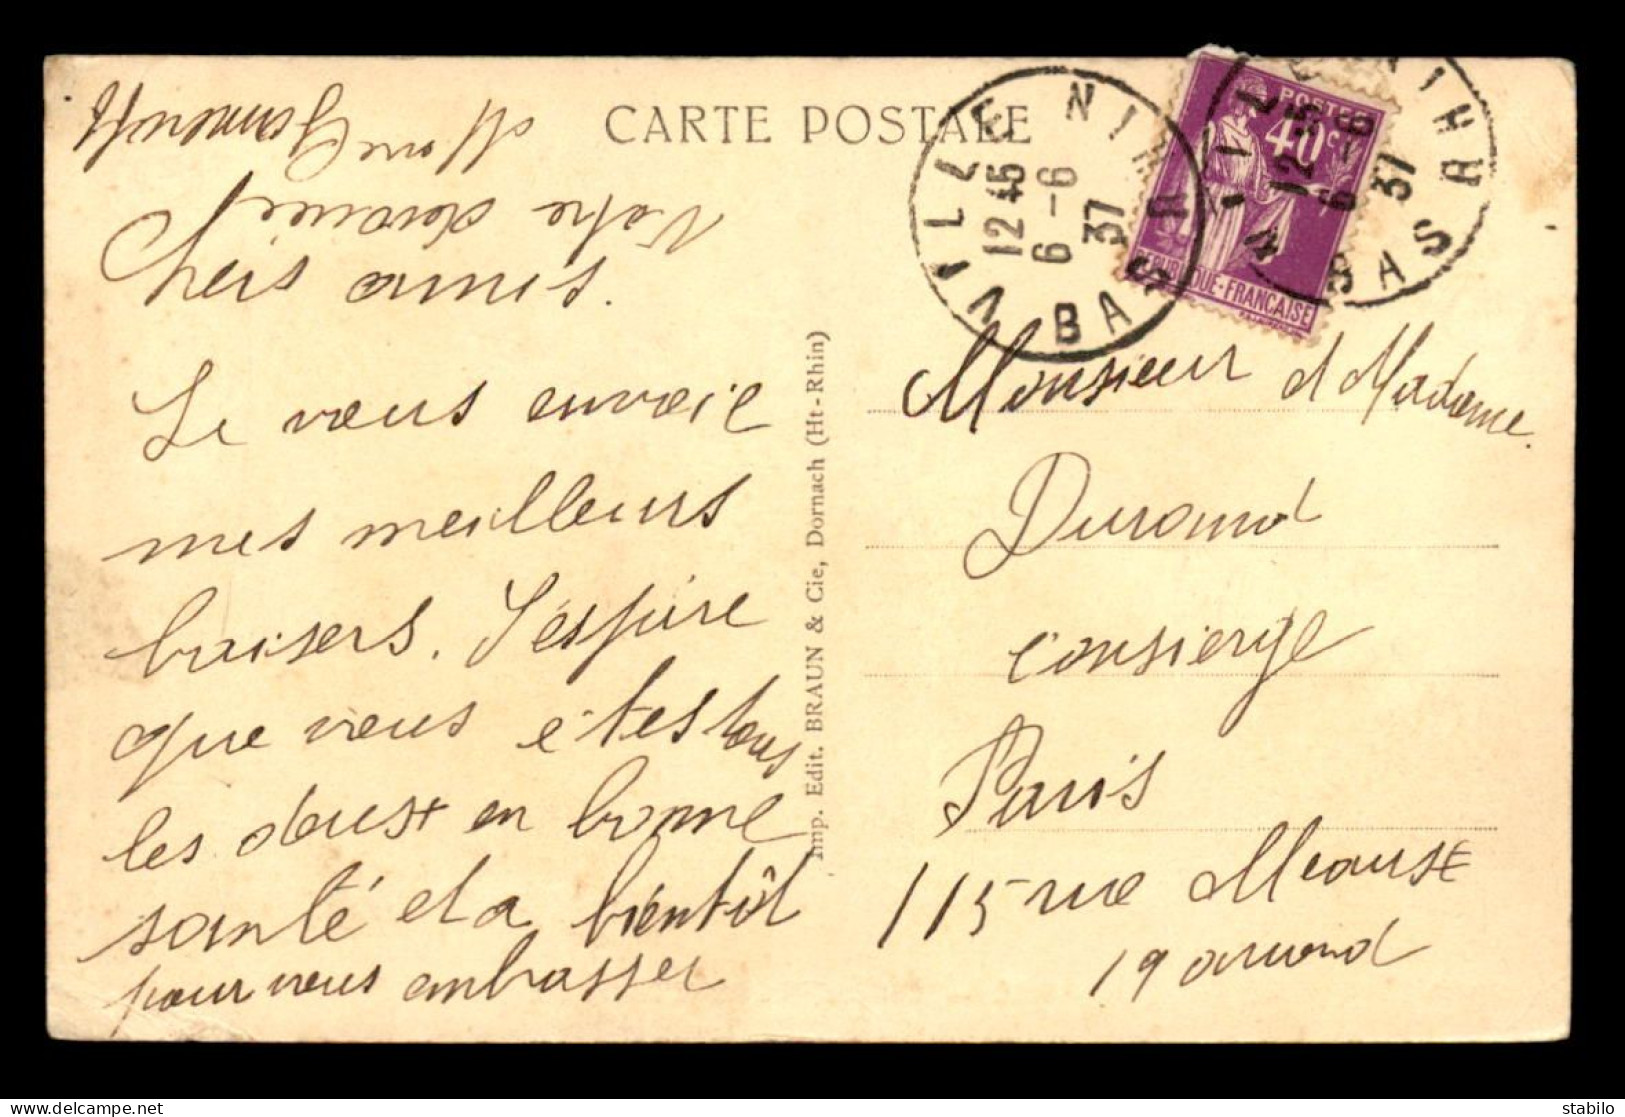 CARTE POSTALE
Chers amis.
Je vous envoie
mes meilleurs
baisers. J'éspère
que vous étes tous
les deust en bonne
santé et a bientôt
pour vous embrasser
Votre dévouée
Mme
Imp. Edit. BRAUN & Cie, Dornach (Ht-Rhin)
ANNWILLER BAS RHIN
12 45
6 -6
37
POSTES
40c
REPUBLIQUE-FRANÇAISE
12 45
6 -6
37
BAS RHIN
Monsieur et Madame
Durand
consierge
Paris
115 rue Meaust
19 arrond
stabilo